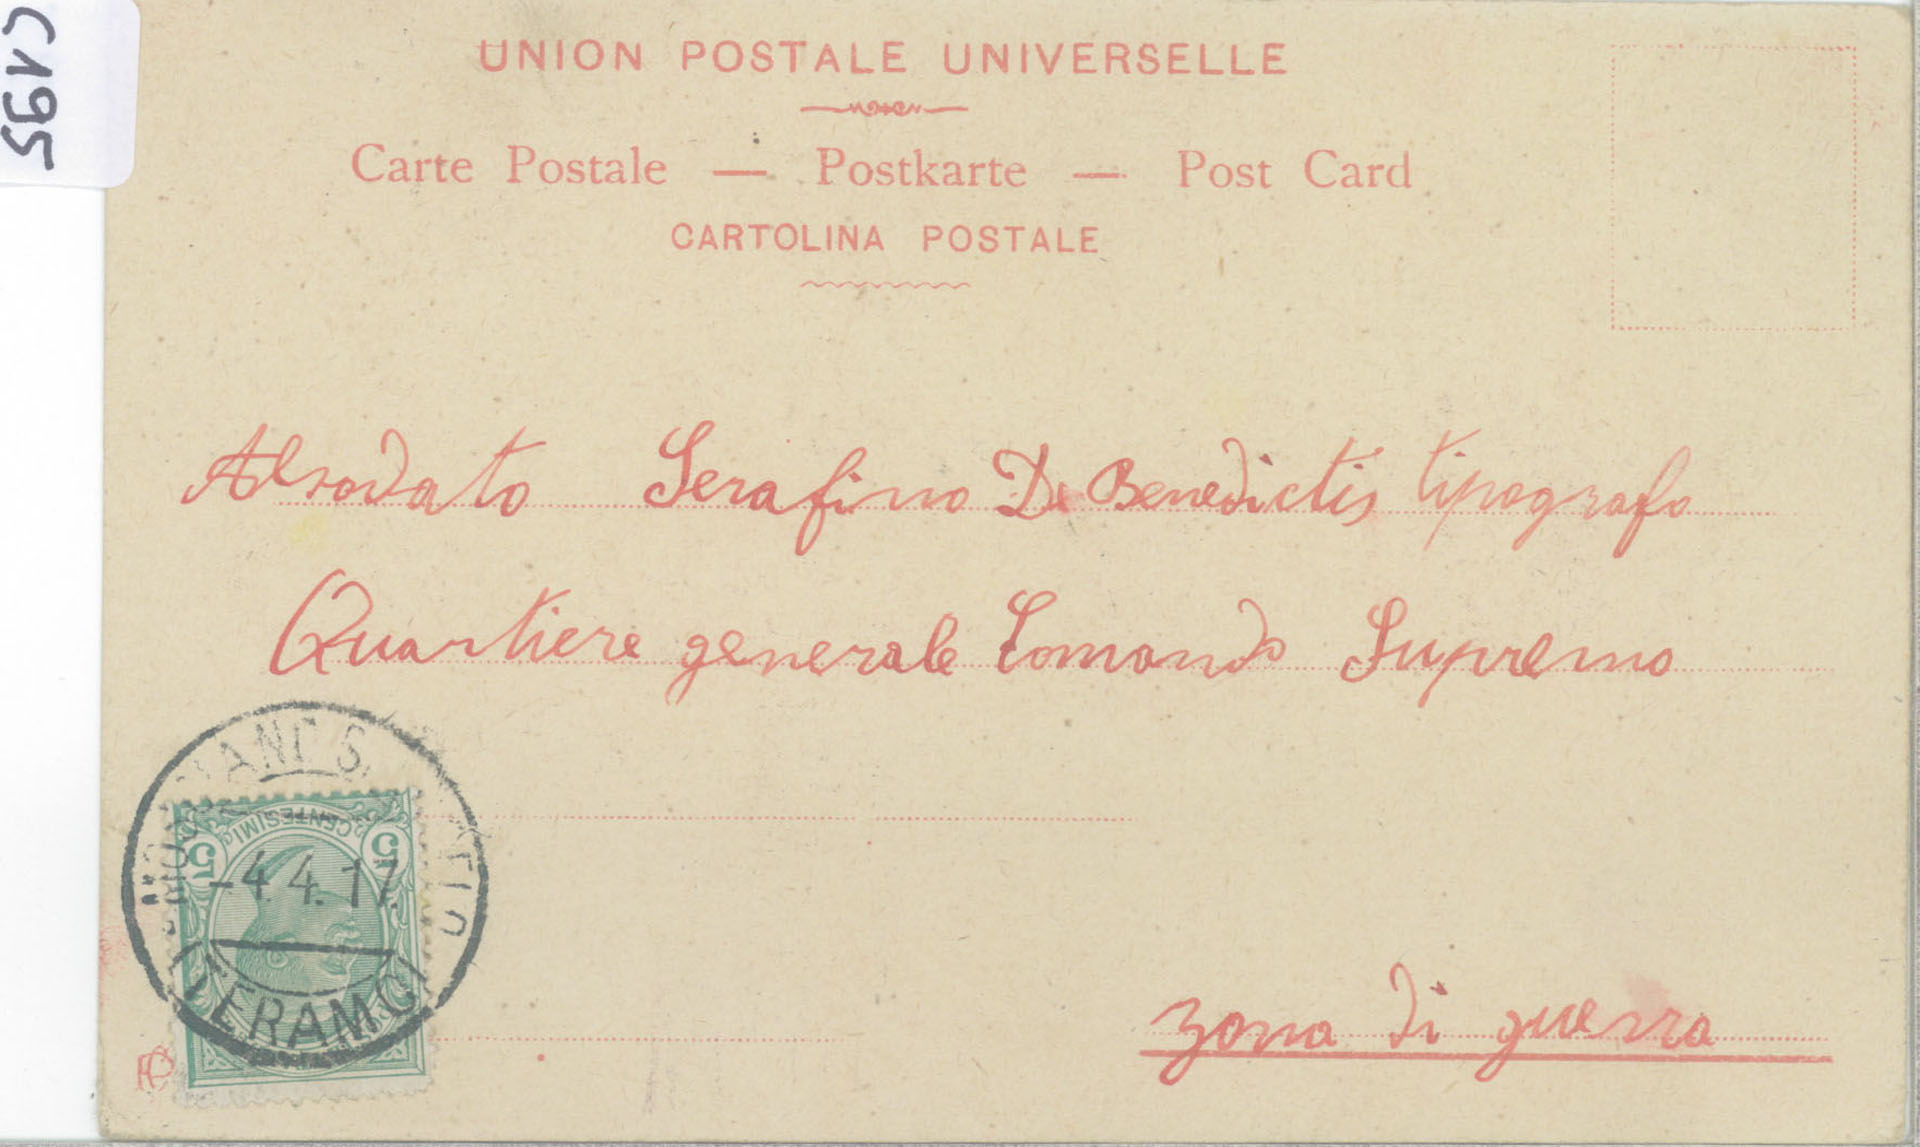 CV95
UNION POSTALE UNIVERSELLE
Carte Postale — Postkarte — Post Card
CARTOLINA POSTALE
Alsodato Serafino De Benedictis tipografo
Quartiere generale Comando Supremo
zona di guerra
CENTESIMI
5 5
-4.4.17.
(TERAMO)